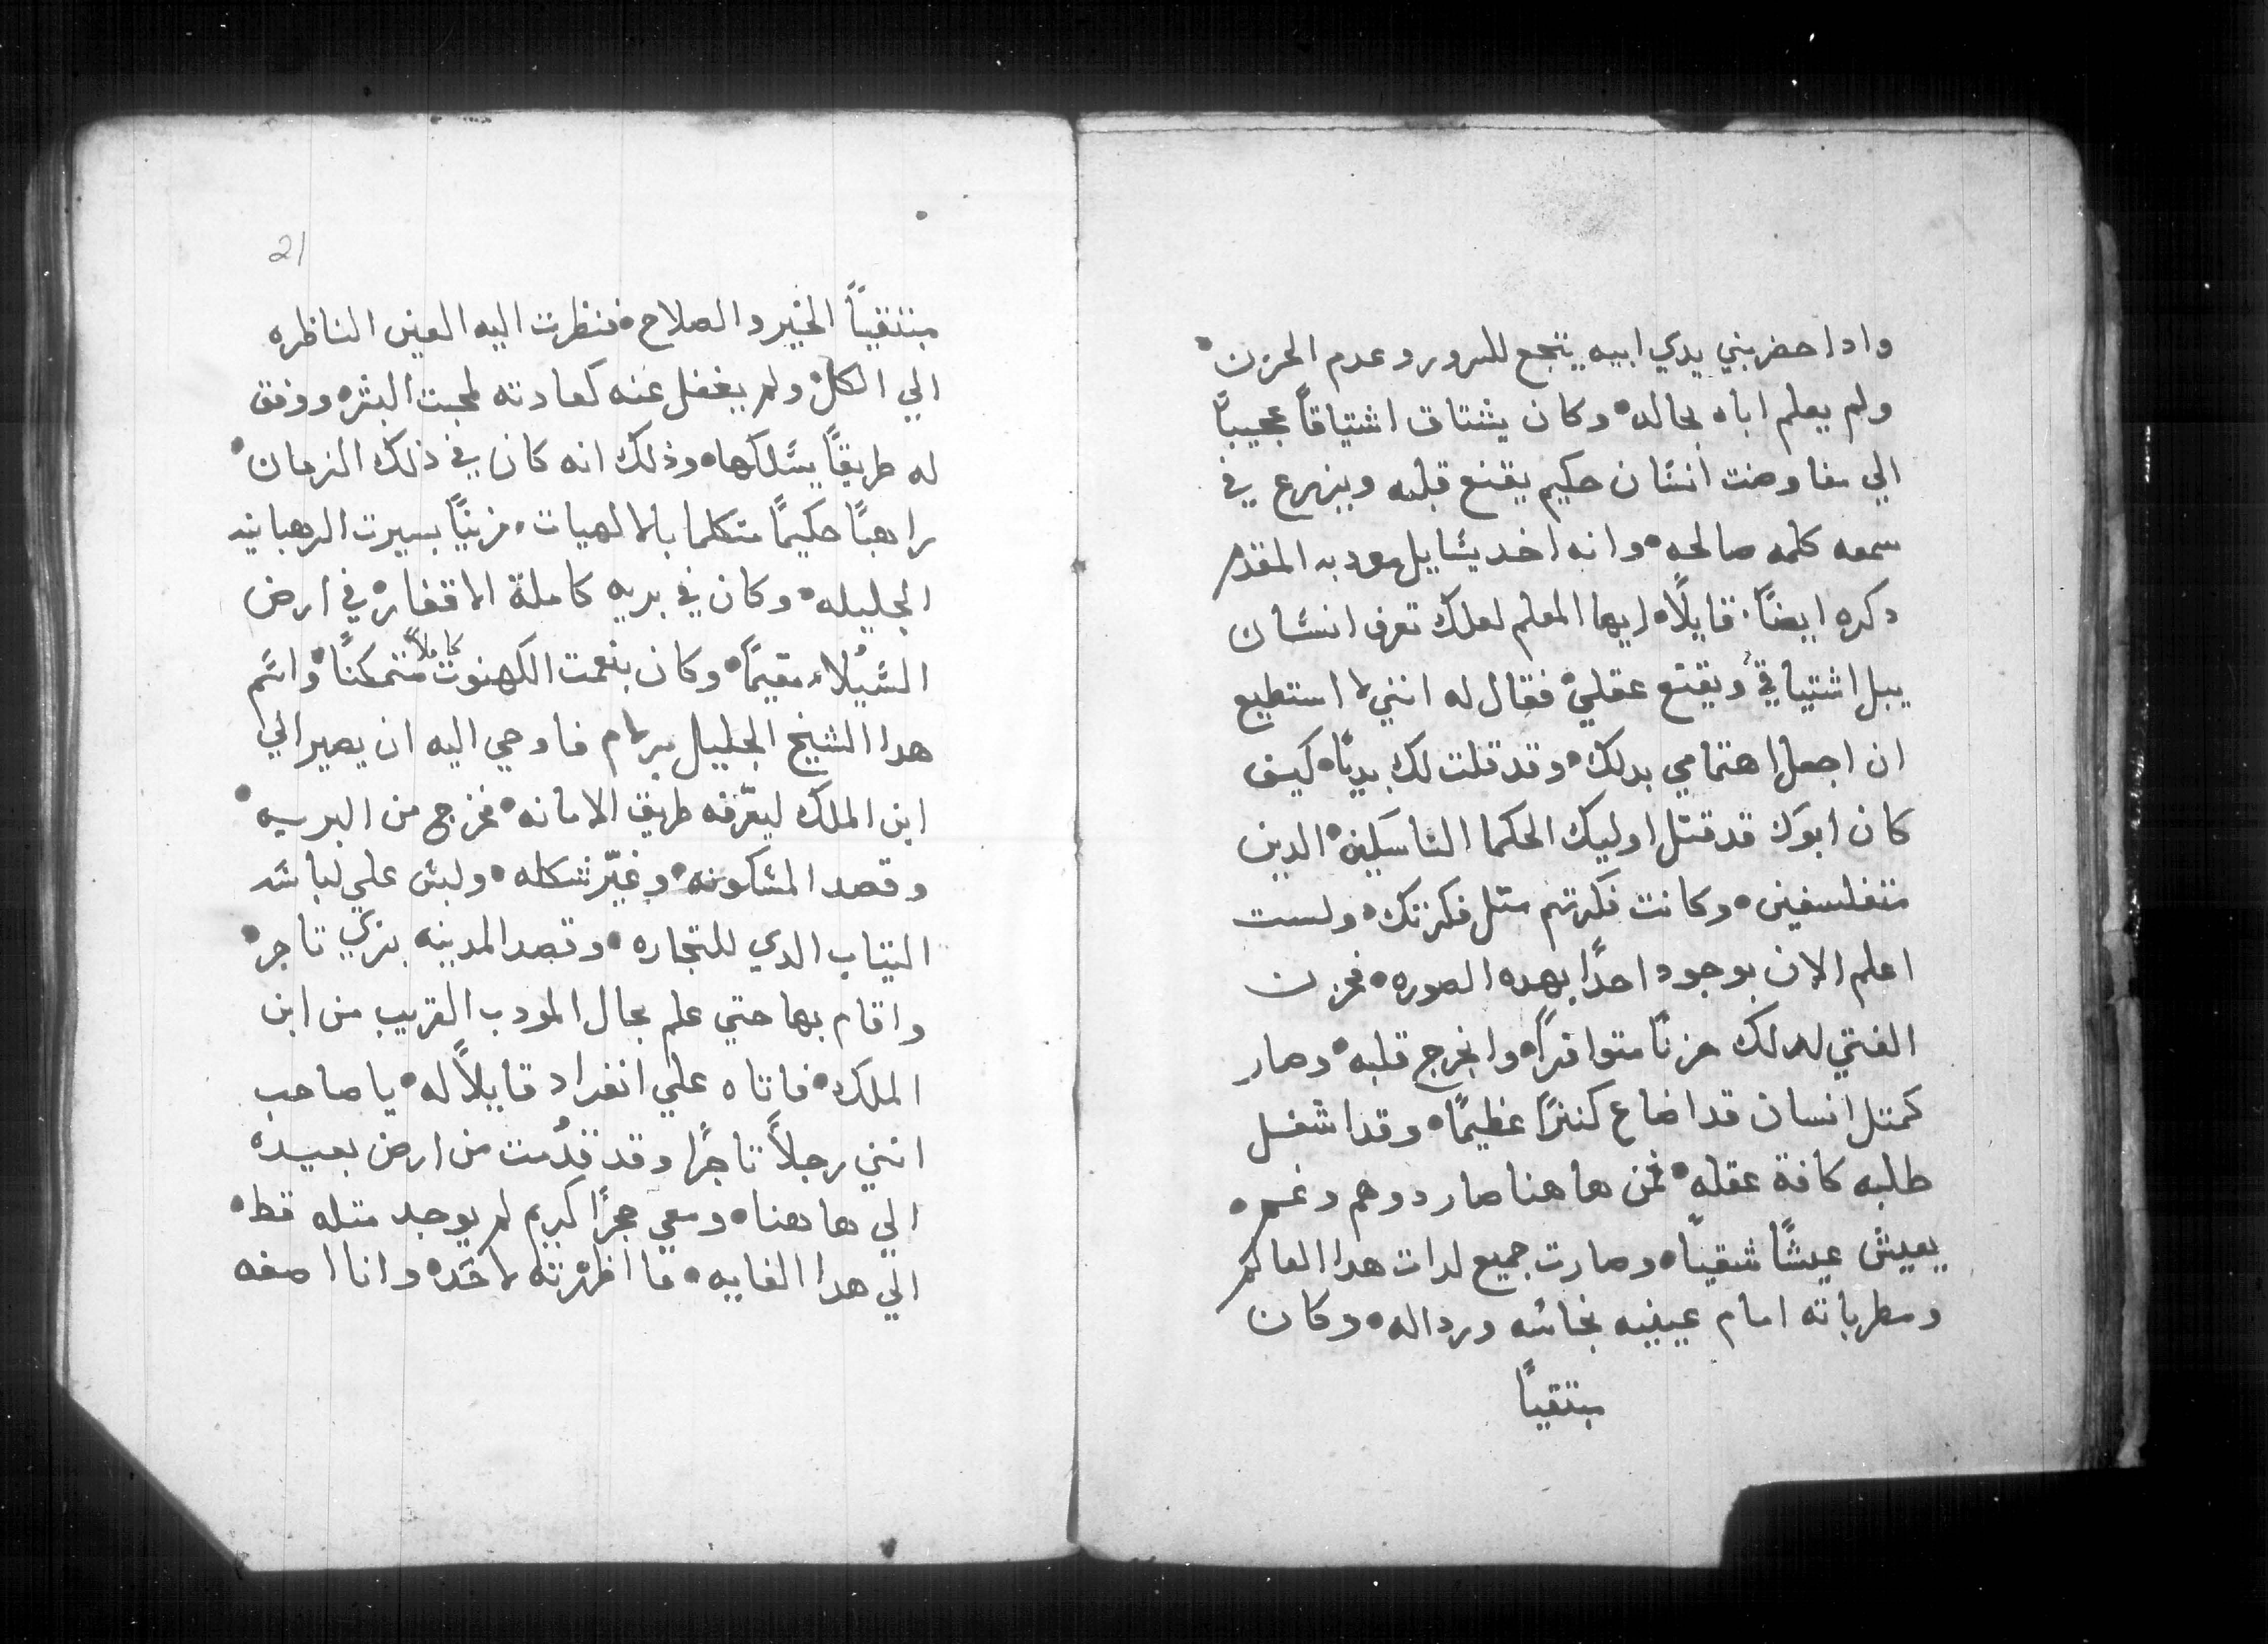 وادا حضر بني يدي ابيه يتجع للسرور وعدم الحزن
ولم يعلم اباه بحاله وكان يشتاق اشتياقاً عجيباً
الي مفاوضت انسان حكيم يقنع قلبه ويزرع في
سمعه كلمه صالحه وانه اخد يسايل مودبه المقدم
دكره ايضاً قايلاً ايها المعلم لعلك تعرف انسان
يبل اشتياقي ويقنع عقلي فقال له انني لا استطيع
ان اجعل اهتمامي بدلك وقد قلت لك بدياً كيف
كان ابوك قد قتل اوليك الحكما الناسكين الدين
متفلسفين وكانت فكرتهم متل فكرتك ولست
اعلم الان بوجود احداً بهده الصوره فحزن
الفتي لدلك حزناً متوافراً وانجرح قلبه وصار
كمتل انسان قد اضاع كنزاً عظيماً وقد اشغل
طلبه كافة عقله فمن هاهنا صار دو هم وغم
يعيش عيشاً شقياً وصارت جميع لدات هدا العالم
ومطرباته امام عينيه نجاسه ورداله وكان
مبتقياً
21
مبتقياً الخير والصلاح فنظرت اليه العين الناظره
الي الكل ولم يغفل عنه كعادته لمحبت البشر ووفق
له طريقاً يسلكها وذلك انه كان في ذلك الزمان
راهباً حكيماً متكلما بالالهيات مزيناً بسيرت الرهبانيه
الجليله وكان في بريه كاملة الاقفار في ارض
السيلاء مقيماً وكان بنعمت الكهنوت كاملاً متمكناً واسم
هدا الشيخ الجليل برلام فاوحي اليه ان يصير الي
ابن الملك ليعرّفه طريق الامانه فخرج من البريه
وقصد المسكونه وغيّر شكله ولبس علي لباسه
التياب الدي للتجاره وقصد المدينه بزي تاجر
واقام بها حتي علم بحال المودب القريب من ابن
الملك فاتاه علي انفراد قايلاً له يا صاحب
انني رجلاً تاجراً وقد قدُمت من ارض بعيده
الي هاهنا ومعي حجراً كريم لم يوجد متله قط
الي هدا الغايه ما اظهرته لاحد وانا اصفه